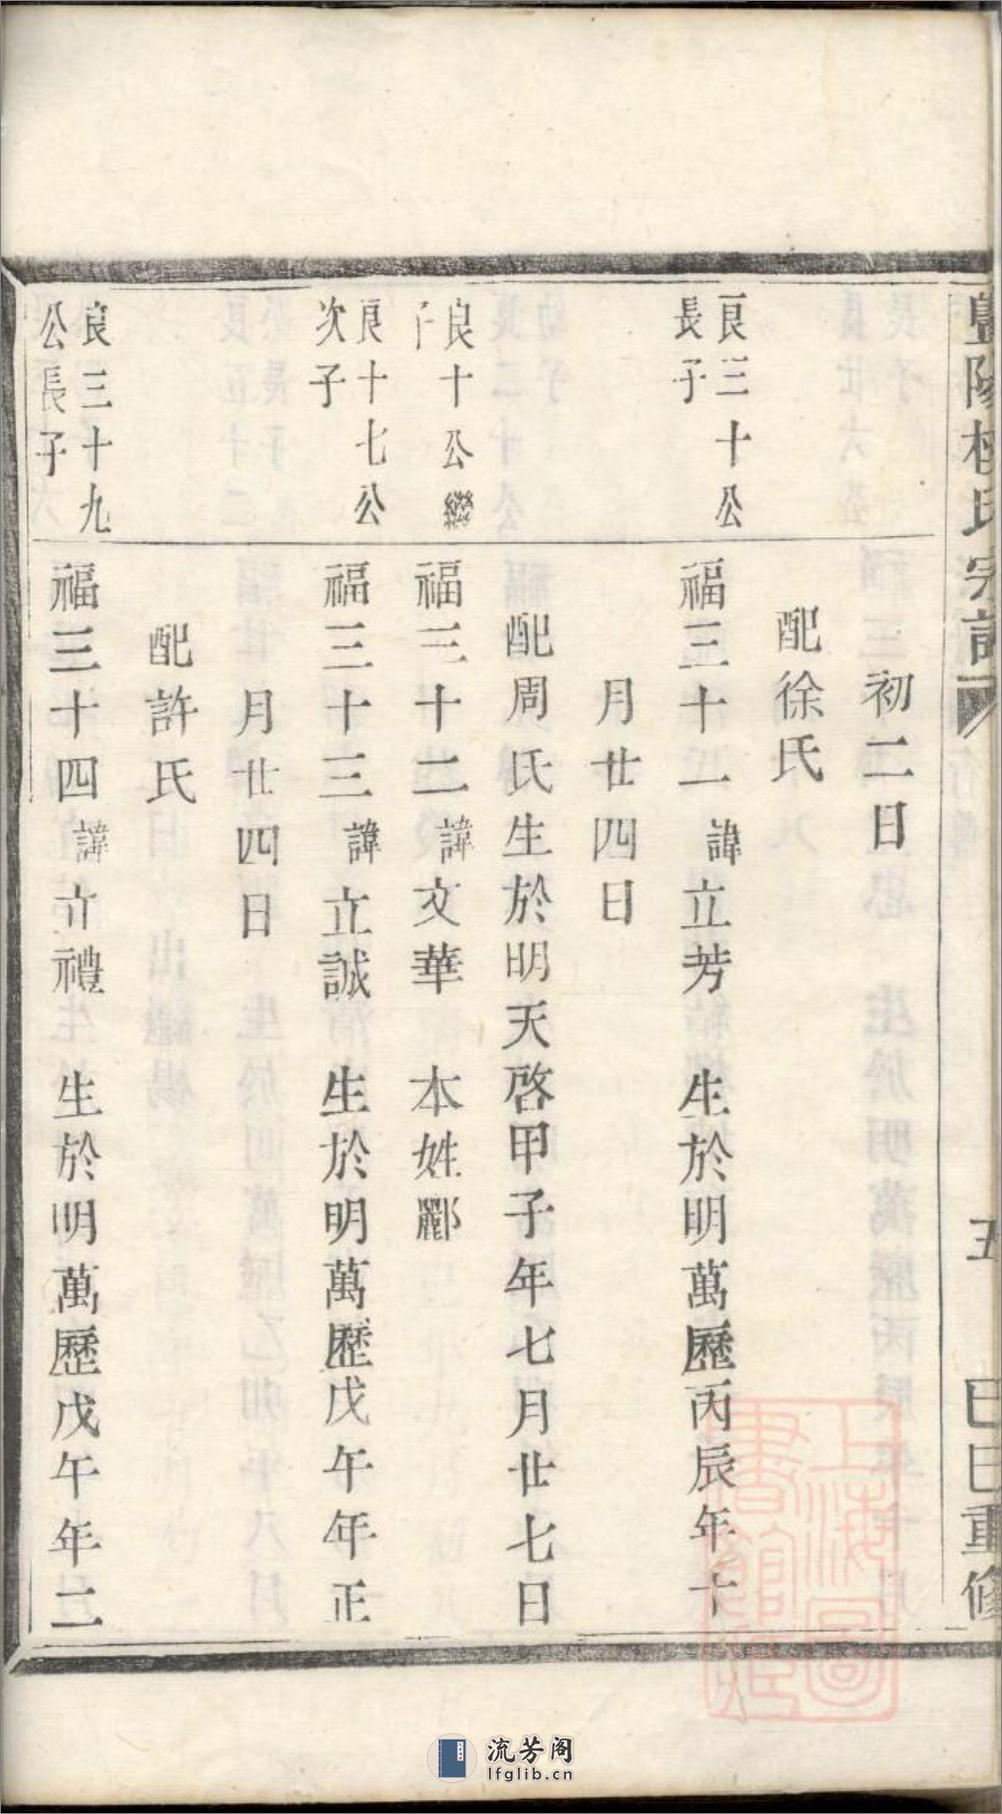 暨陽楊氏宗譜
五
已巳重修
初二日
配徐氏
良三十公
長子
福三十一諱立芳 生於明萬歷丙辰年十
月廿四日
配周氏生於明天啓甲子年七月廿七日
良十公繼
子
福三十二諱文華 本姓酈
良十七公
次子
福三十三諱立誠 生於明萬歷戊午年正
月廿四日
配許氏
良三十九
公長子
福三十四諱立禮 生於明萬歷戊午年二
上海圖
書館藏
流芳阁
lfglib.cn